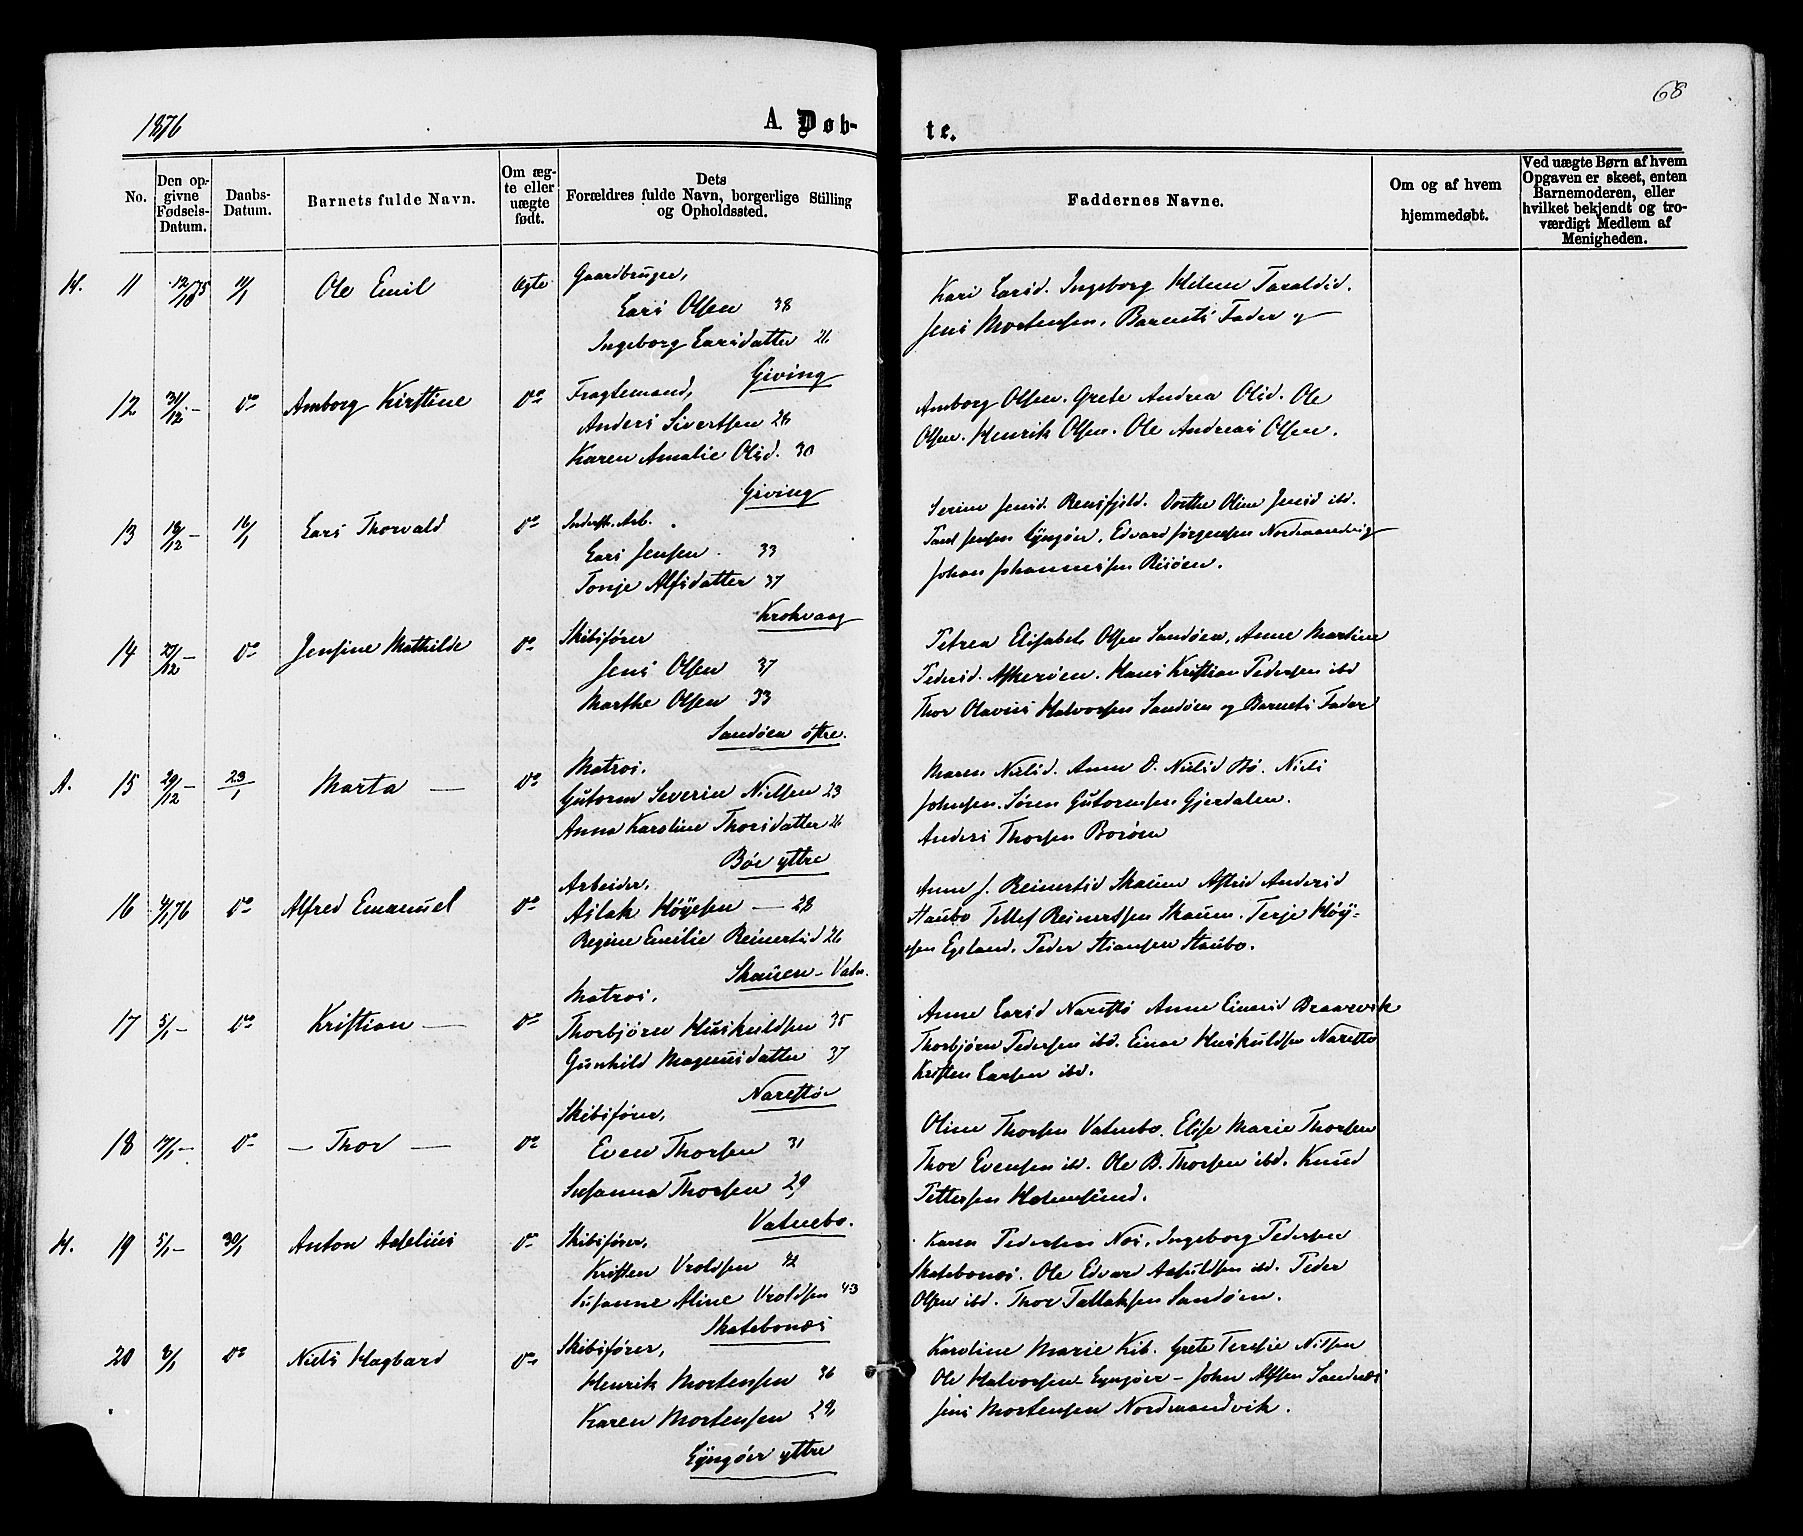 68
1876
A. Døb-
te.
No.
Den op-
givne
Fødsels-
Datum.
Daabs-
Datum.
Barnets fulde Navn.
Om æg-
te eller
uægte
født.
Dets
Forældres fulde Navn, borgerlige Stilling
og Opholdssted.
Faddernes Navne.
Om og af hvem
hjemmedøbt.
Ved uægte Børn af hvem
Opgaven er skeet, enten
Barnemoderen, eller
hvilket bekjendt og tro-
værdigt Medlem af
Menigheden.
H. 11 Ole Emil Ægte Gaardbruger,
Lars Olsen 38
Ingeborg Larsdatter 26
Giving
Kari Larsd. Ingeborg Helene Taraldsd.
Jens Mortensen. Barnets Fader
12 31/12 - Do Amborg Kirstine Do Fragtemand,
Anders Sivertsen 26
Karen Amalie Olsd. 30
Giving
Amborg Olsen. Grete Andrea Olsd. Ole
Olsen. Henrik Olsen. Ole Andreas Olsen.
13 18/12 - 16/1 Lars Thorvald Do Inderst. Arb.
Lars Jensen. 33
Tonje Alfsdatter 37
Krokvaag
Serine Jensd. Rensfjeld. Dorthe Oline Jensd ibd.
Jensen Lyngøer, Edvard Jørgensen Nordmandvig
Johan Johannessen Risøen.
14 27/12 - Do Jensine Mathilde Do Skibsfører
Jens Olsen 37
Marthe Olsen 33
Sandøen østre.
Petrea Elisabet Olsen Sandøen, Anne Martine
Pedersd. Askerøen. Hans Kristian Pedersen ibd
Thor Olavus Halvorsen Sandøen og Barnets Fader
A. 15 29/12 - 23/1 Marta — Do Matros.
Gutorm Severin Nielsen 23
Anna Karoline Thorsdatter 26
Bøe yttre
Maren Nielsd. Anne O. Nielsd Bø. Niels
Johnsen. Søren Gutormsen Gjerdalen.
Anders Thorsen Borøen
16 4/1 76 Do Alfred Emanuel Do Arbeider,
Aslak Høyesen — 28
Regine Emilie Reinertsd 26
Skauen - Vatn.
Anne J. Reinertsd Skauen Astrid Andersd
Staubo Tellef Reinertsen Skauen. Terje Høy-
sen Egeland. Peder Stiansen Staubo.
17 5/1 - Do Kristian — Do Matros.
Thorbjørn Huskuldsen 35
Gunhild Magnusdatter 37
Narestøe
Anne Larsd Narestø Anne Einarsd Braarvik
Thorbjørn Pedersen ibd. Einar Huskuldsen Narestø
Kristen Larsen ibd.
18 Do - Thor — Do Skibsfører,
Even Thorsen 31
Susanna Thorsen 29
Vatnebo.
Oline Thorsen Vatnebo. Elise Marie Thorsen
Thor Evensen ib. Ole B. Thorsen ibd. Knud
Pettersen Holmesund.
H. 19 5/1 - 30/1 Anton Adelius Do Skibsfører,
Kristen Vroldsen 42
Susanne Aline Vroldsen 43
Skatebonæs
Karen Pedersen Næs, Ingeborg Pedersen
Skatebonæs. Ole Edvard Aasuldsen ibd. Peder
Olsen ibd. Thor Tallaksen Sandøen.
20 8/1 Do Niels Hagbard Do Skibsfører,
Henrik Mortensen 36
Karen Mortensen 29
Lyngøer yttre
Karoline Marie Kib. Grete Teresie Nilsen
Ole Halvorsen Lyngøer - John Alfsen Sandnæs
Jens Mortensen Nordmandvik.